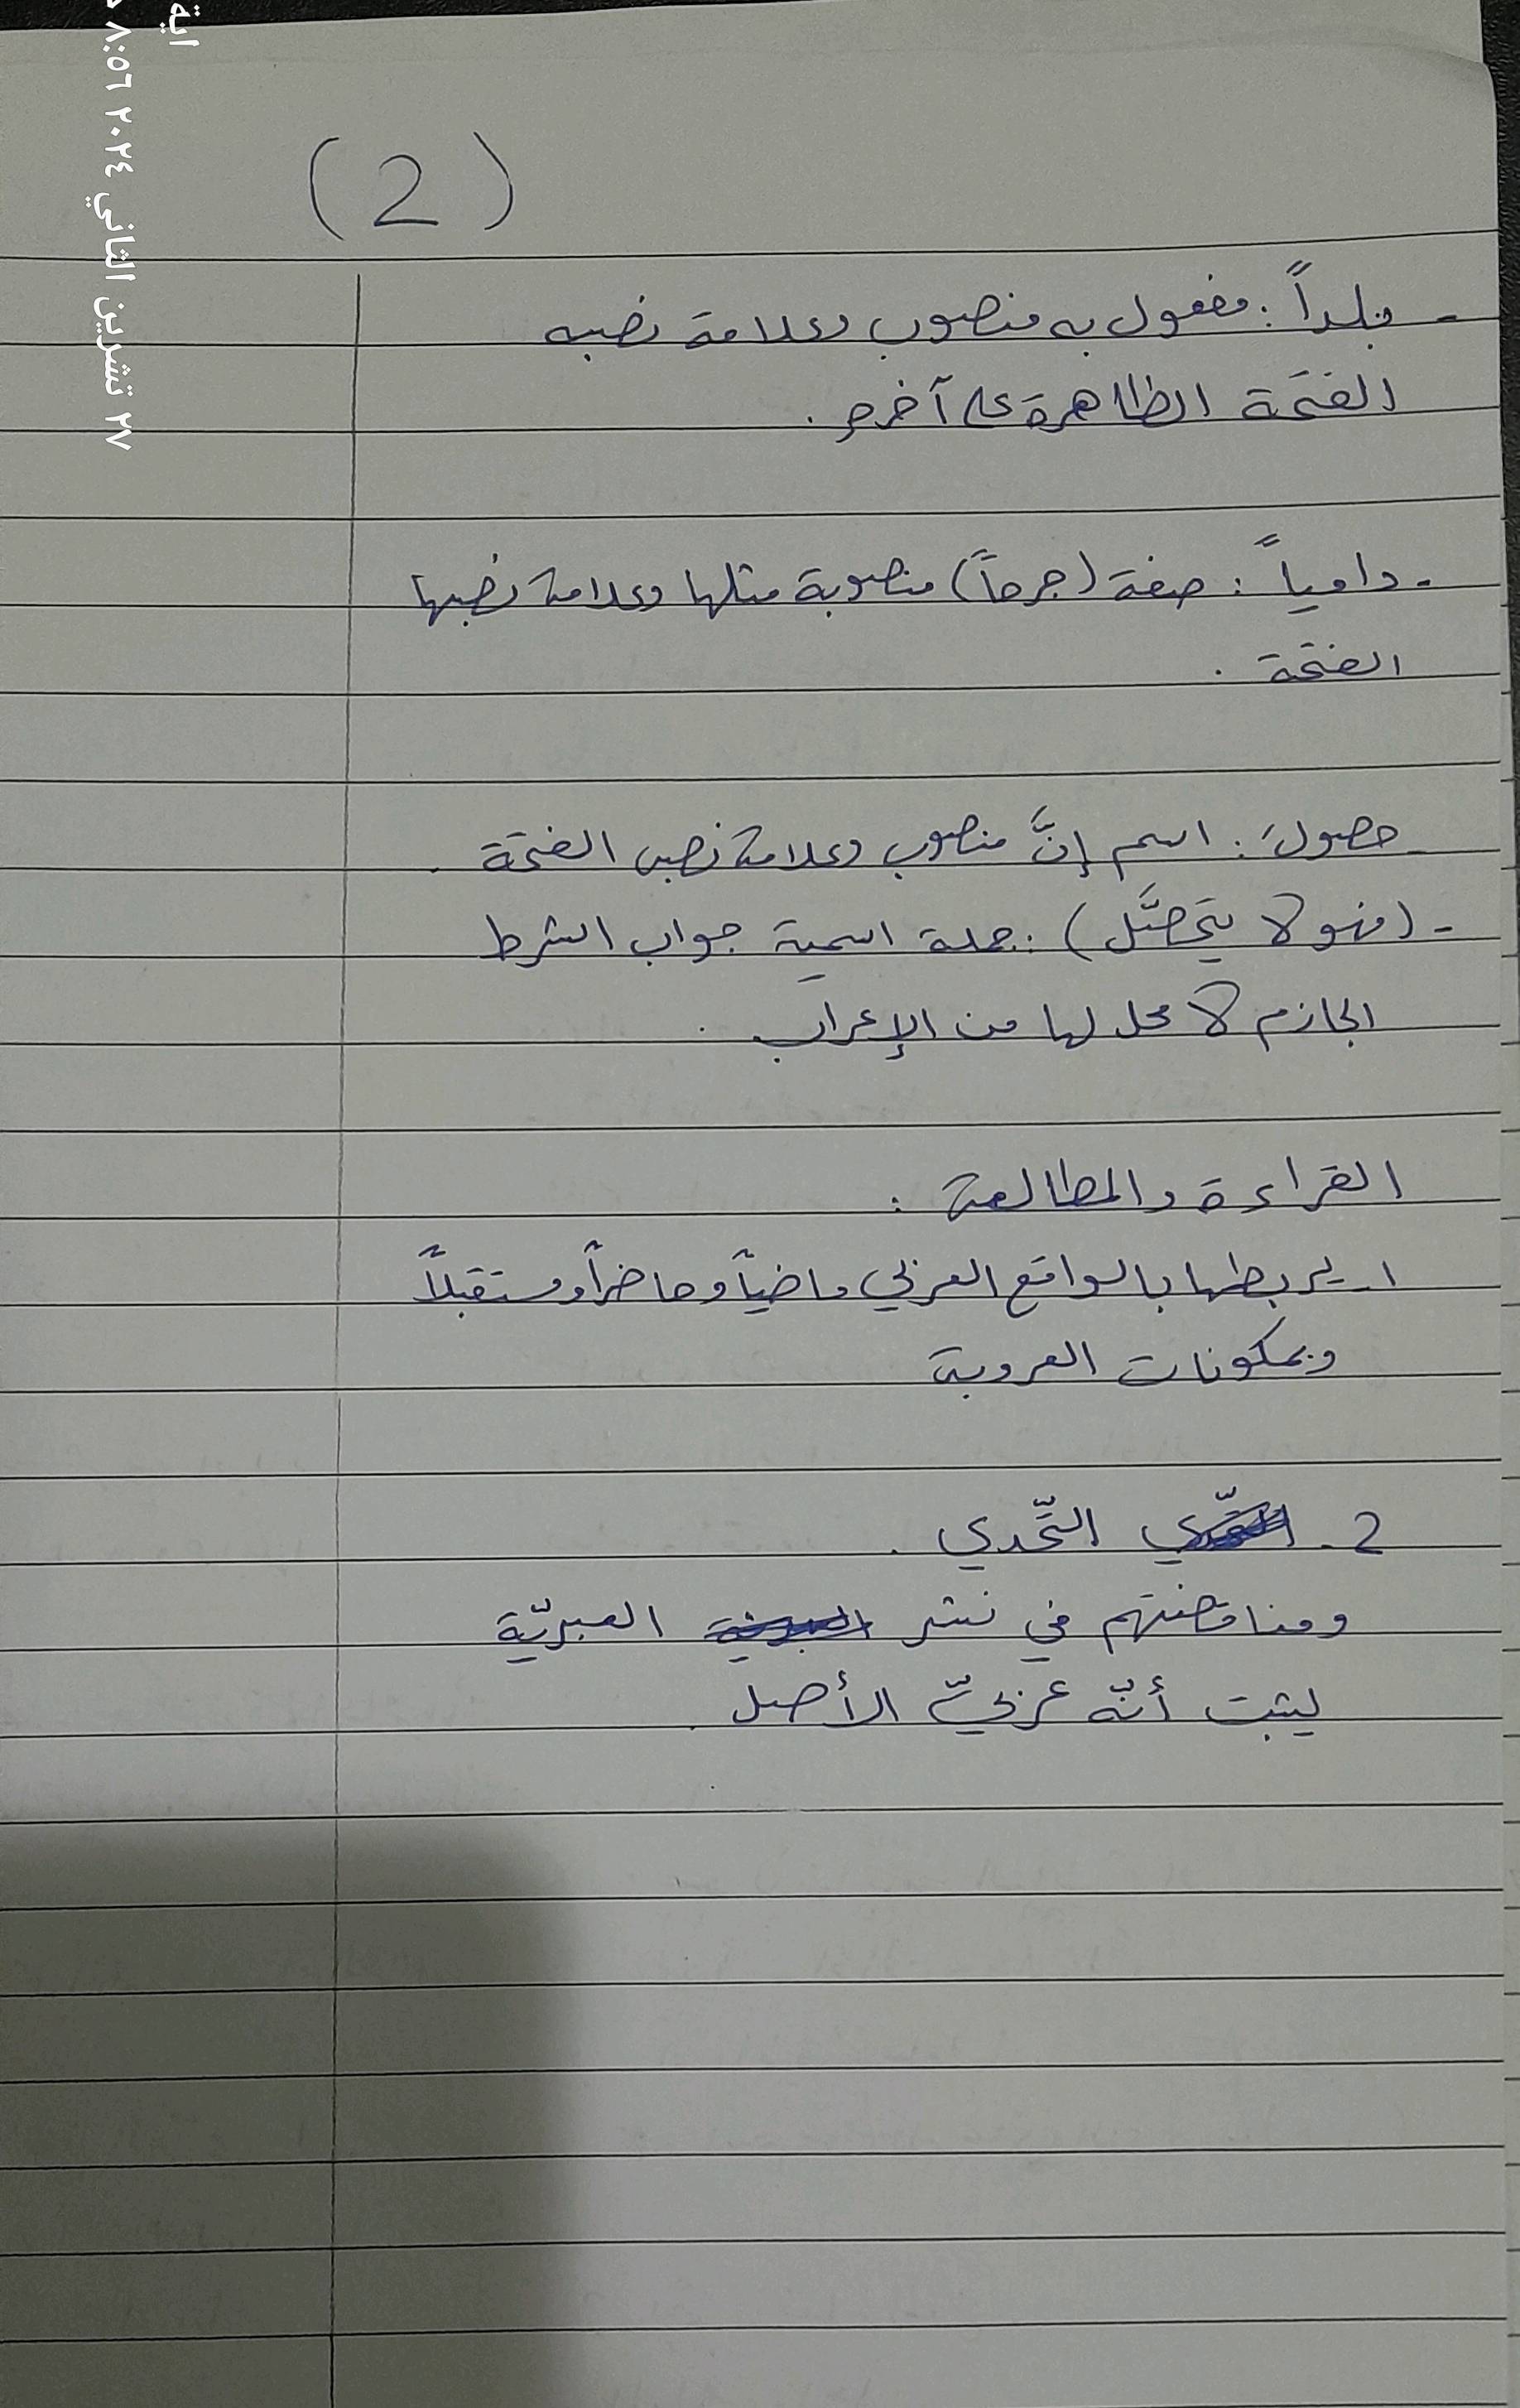 (2)
- بلداً: مفعول به منصوب وعلامة نصبه
الفتحة الظاهرة على آخره.
- دامياً: صفة (جرحاً) منصوبة مثلها وعلامة نصبها
الفتحة.
حصولَ: اسم إنَّ منصوب وعلامة نصبه الفتحة.
- (فهو لا يتحصَّل): جملة اسمية جواب الشرط
الجازم لا محل لها من الإعراب.
القراءة والمطالعة:
1- يربطها بالواقع العربي ماضياً وحاضراً ومستقبلاً
وبمكونات العروبة
2- التّحدي.
ومناقضتهم في نشر العبريّة
ليثبت أنّه عربيّ الأصل.
اية
٢٧ تشرين الثاني ٢٠٢٤ ٨:٥٦